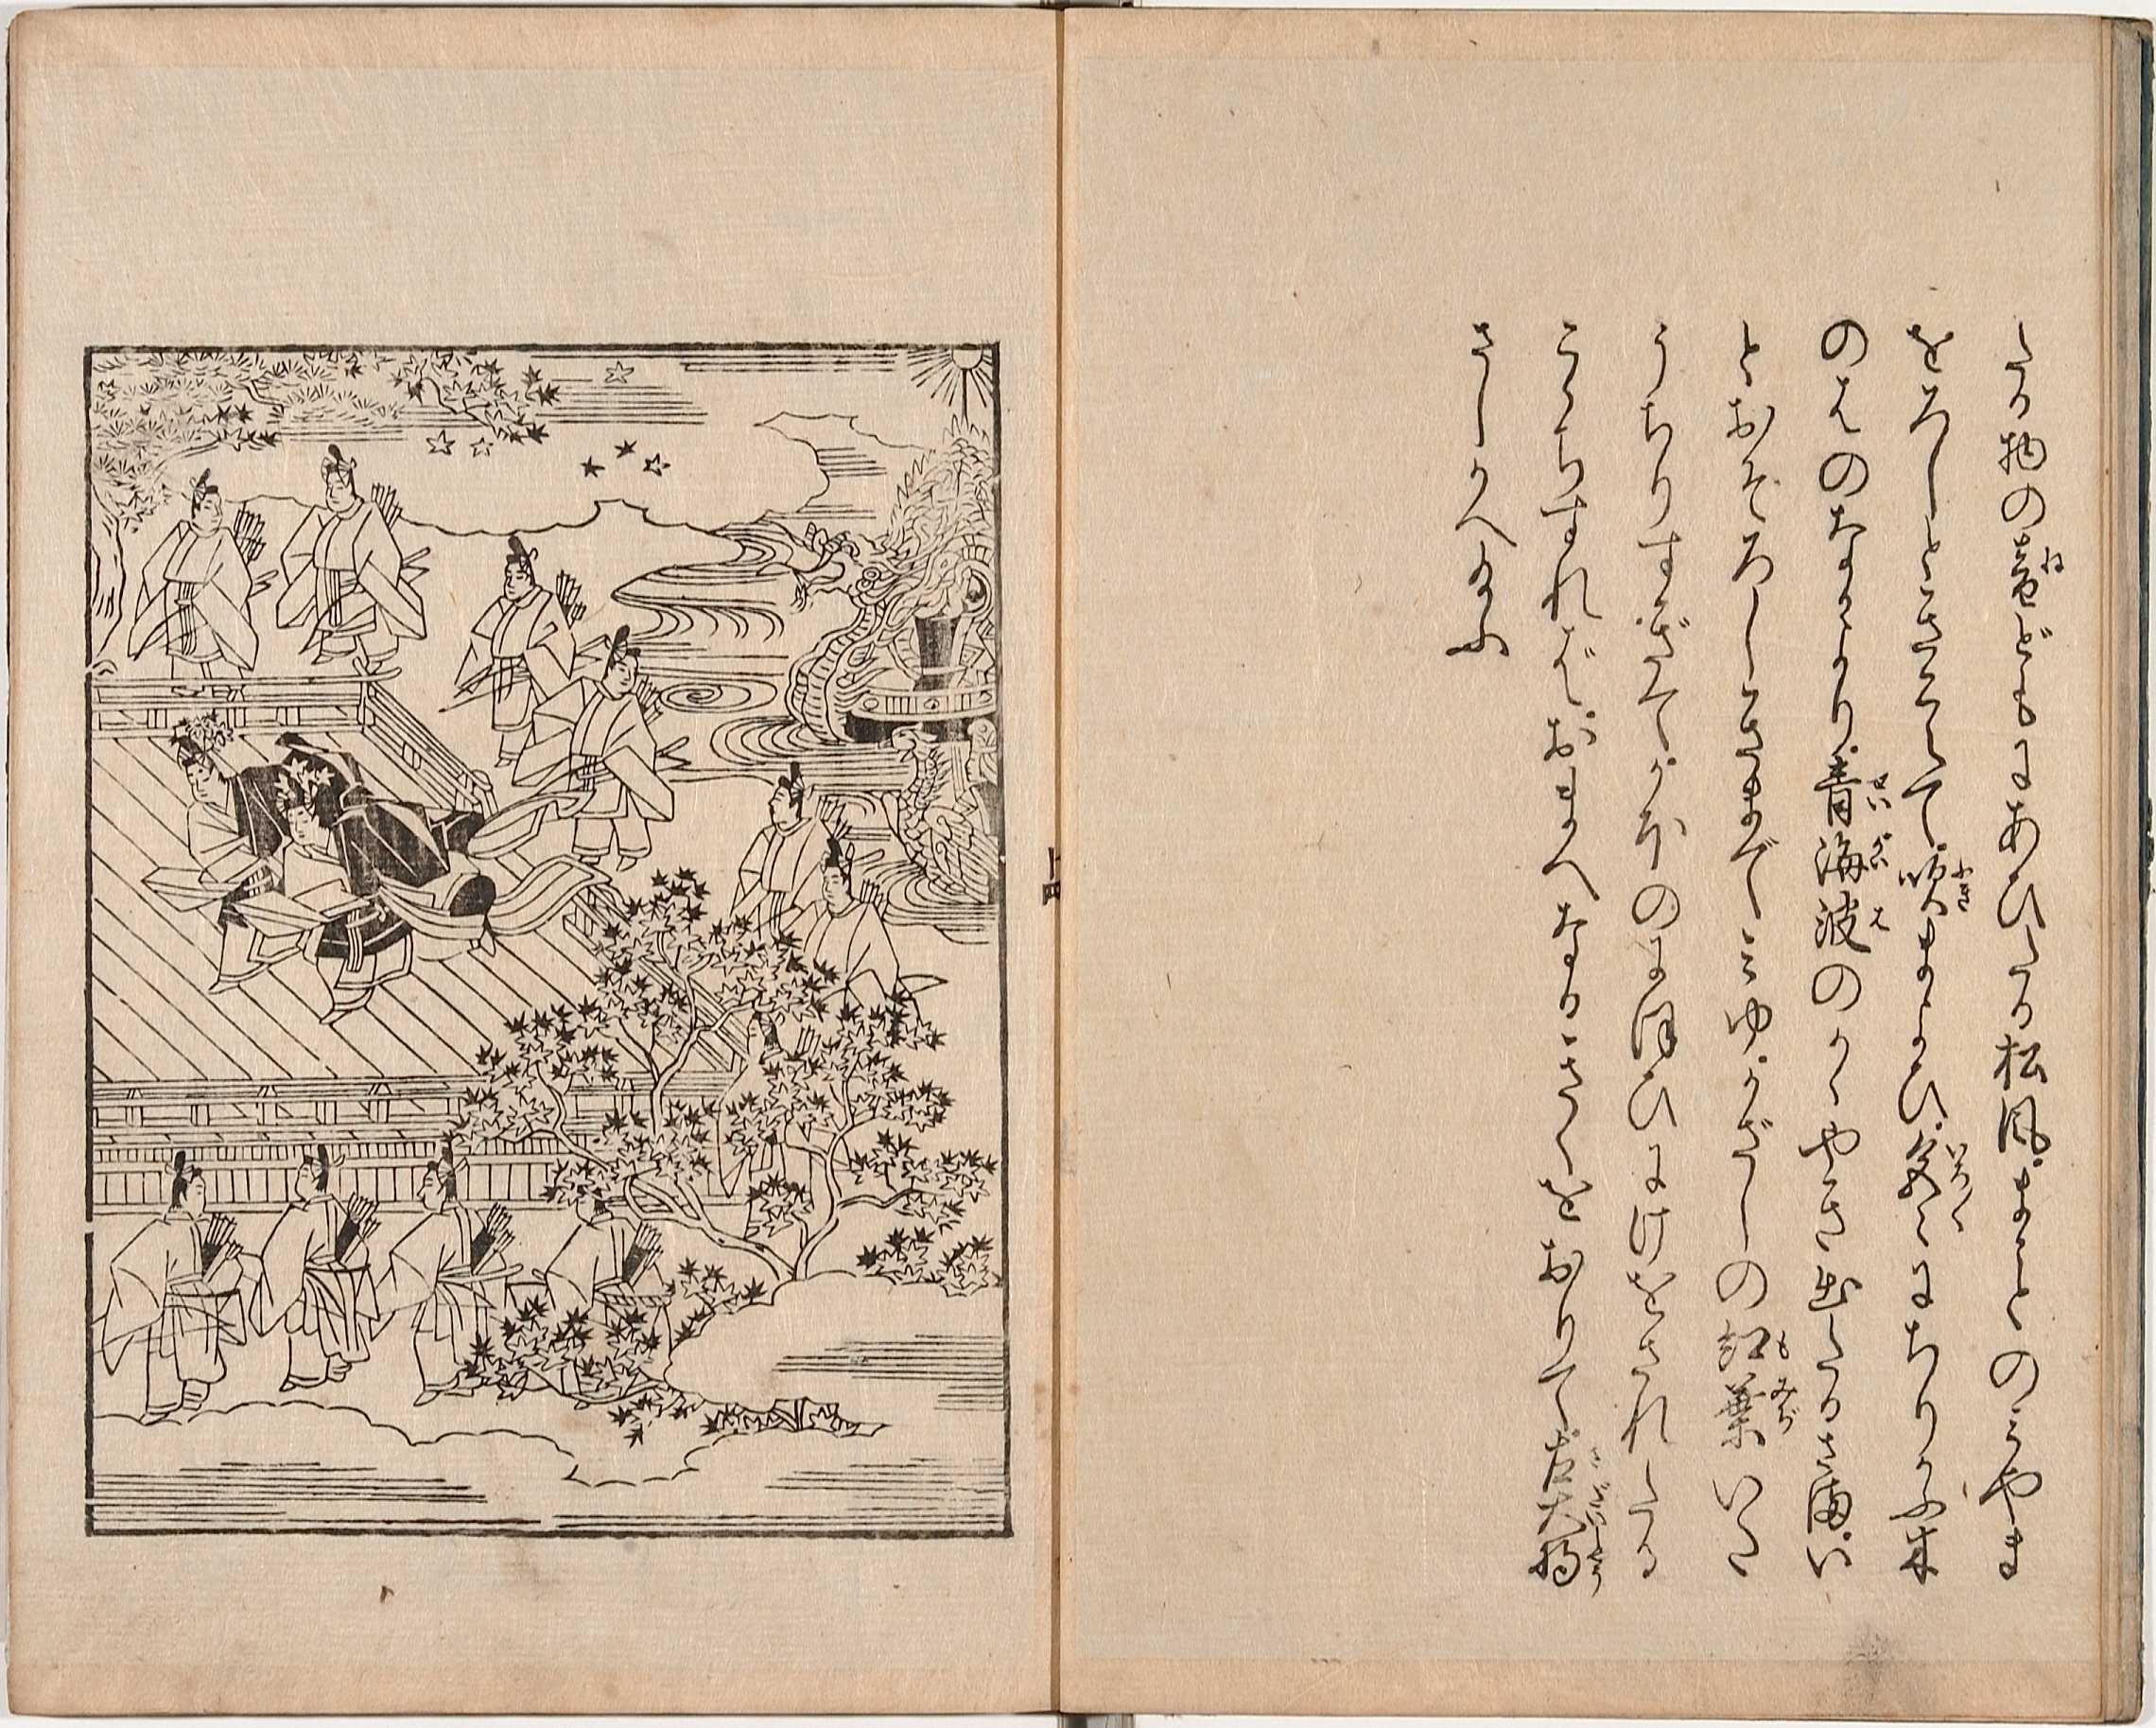 たる物の音どもにあひたる松風まことのみやま
をろしときこえて吹まよひ色〳〵にちりかふ木
のはのなかより青海波のかゝやき出たるさまい
とおそろしきまでみゆかざしの紅葉いた
うちりすぎてかほのにほひにけをされたる
こゝちすればおまへなるきくをおりて左大将
さしかへ給ふ